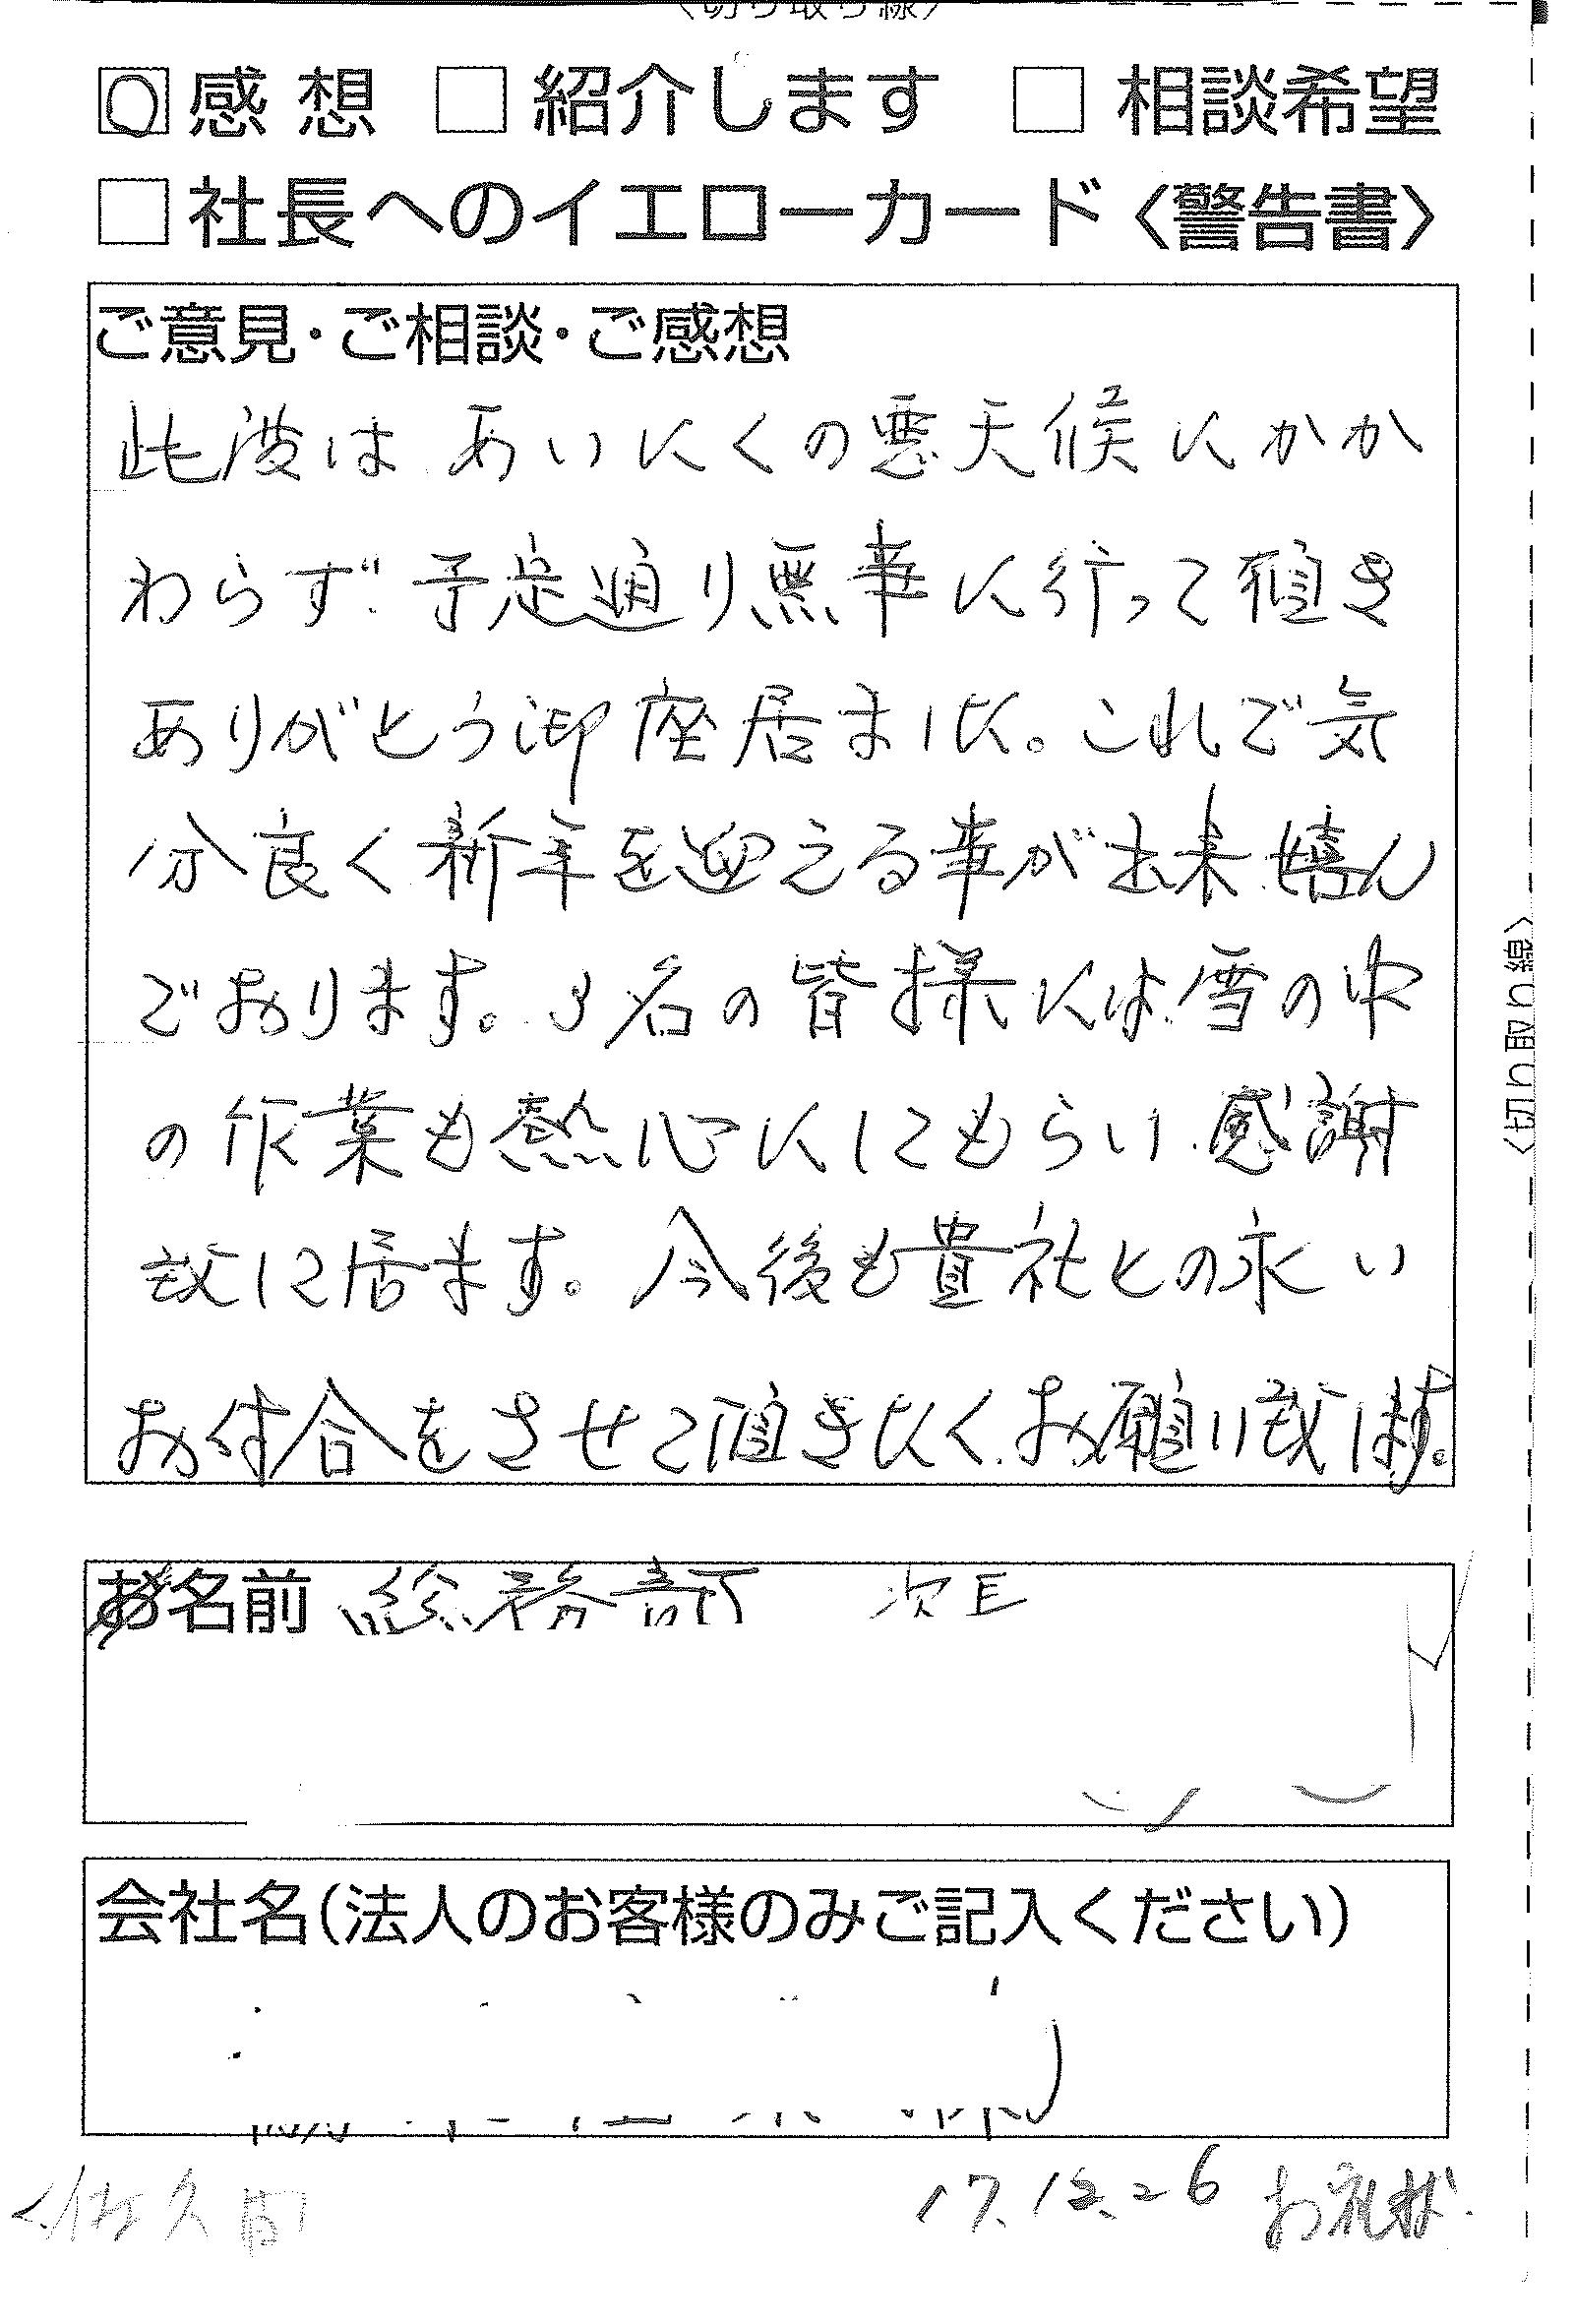 〈切り取り線〉
感想 紹介します 相談希望
社長へのイエローカード〈警告書〉
ご意見・ご相談・ご感想
此度はあいにくの悪天候にかか
わらず予定通り無事に行って頂き
ありがとう御座居ました。これで気
分良く新年を迎える事が出来嬉ん
でおります。3名の皆様には雪の中
の作業も熱心にしてもらい感謝
致して居ます。今後も貴社との永い
お付合をさせて頂きたくお願い致します。
〈切り取り線〉
お名前 総務部 次長
会社名(法人のお客様のみご記入ください)
佐久間
17.12.26 お礼状